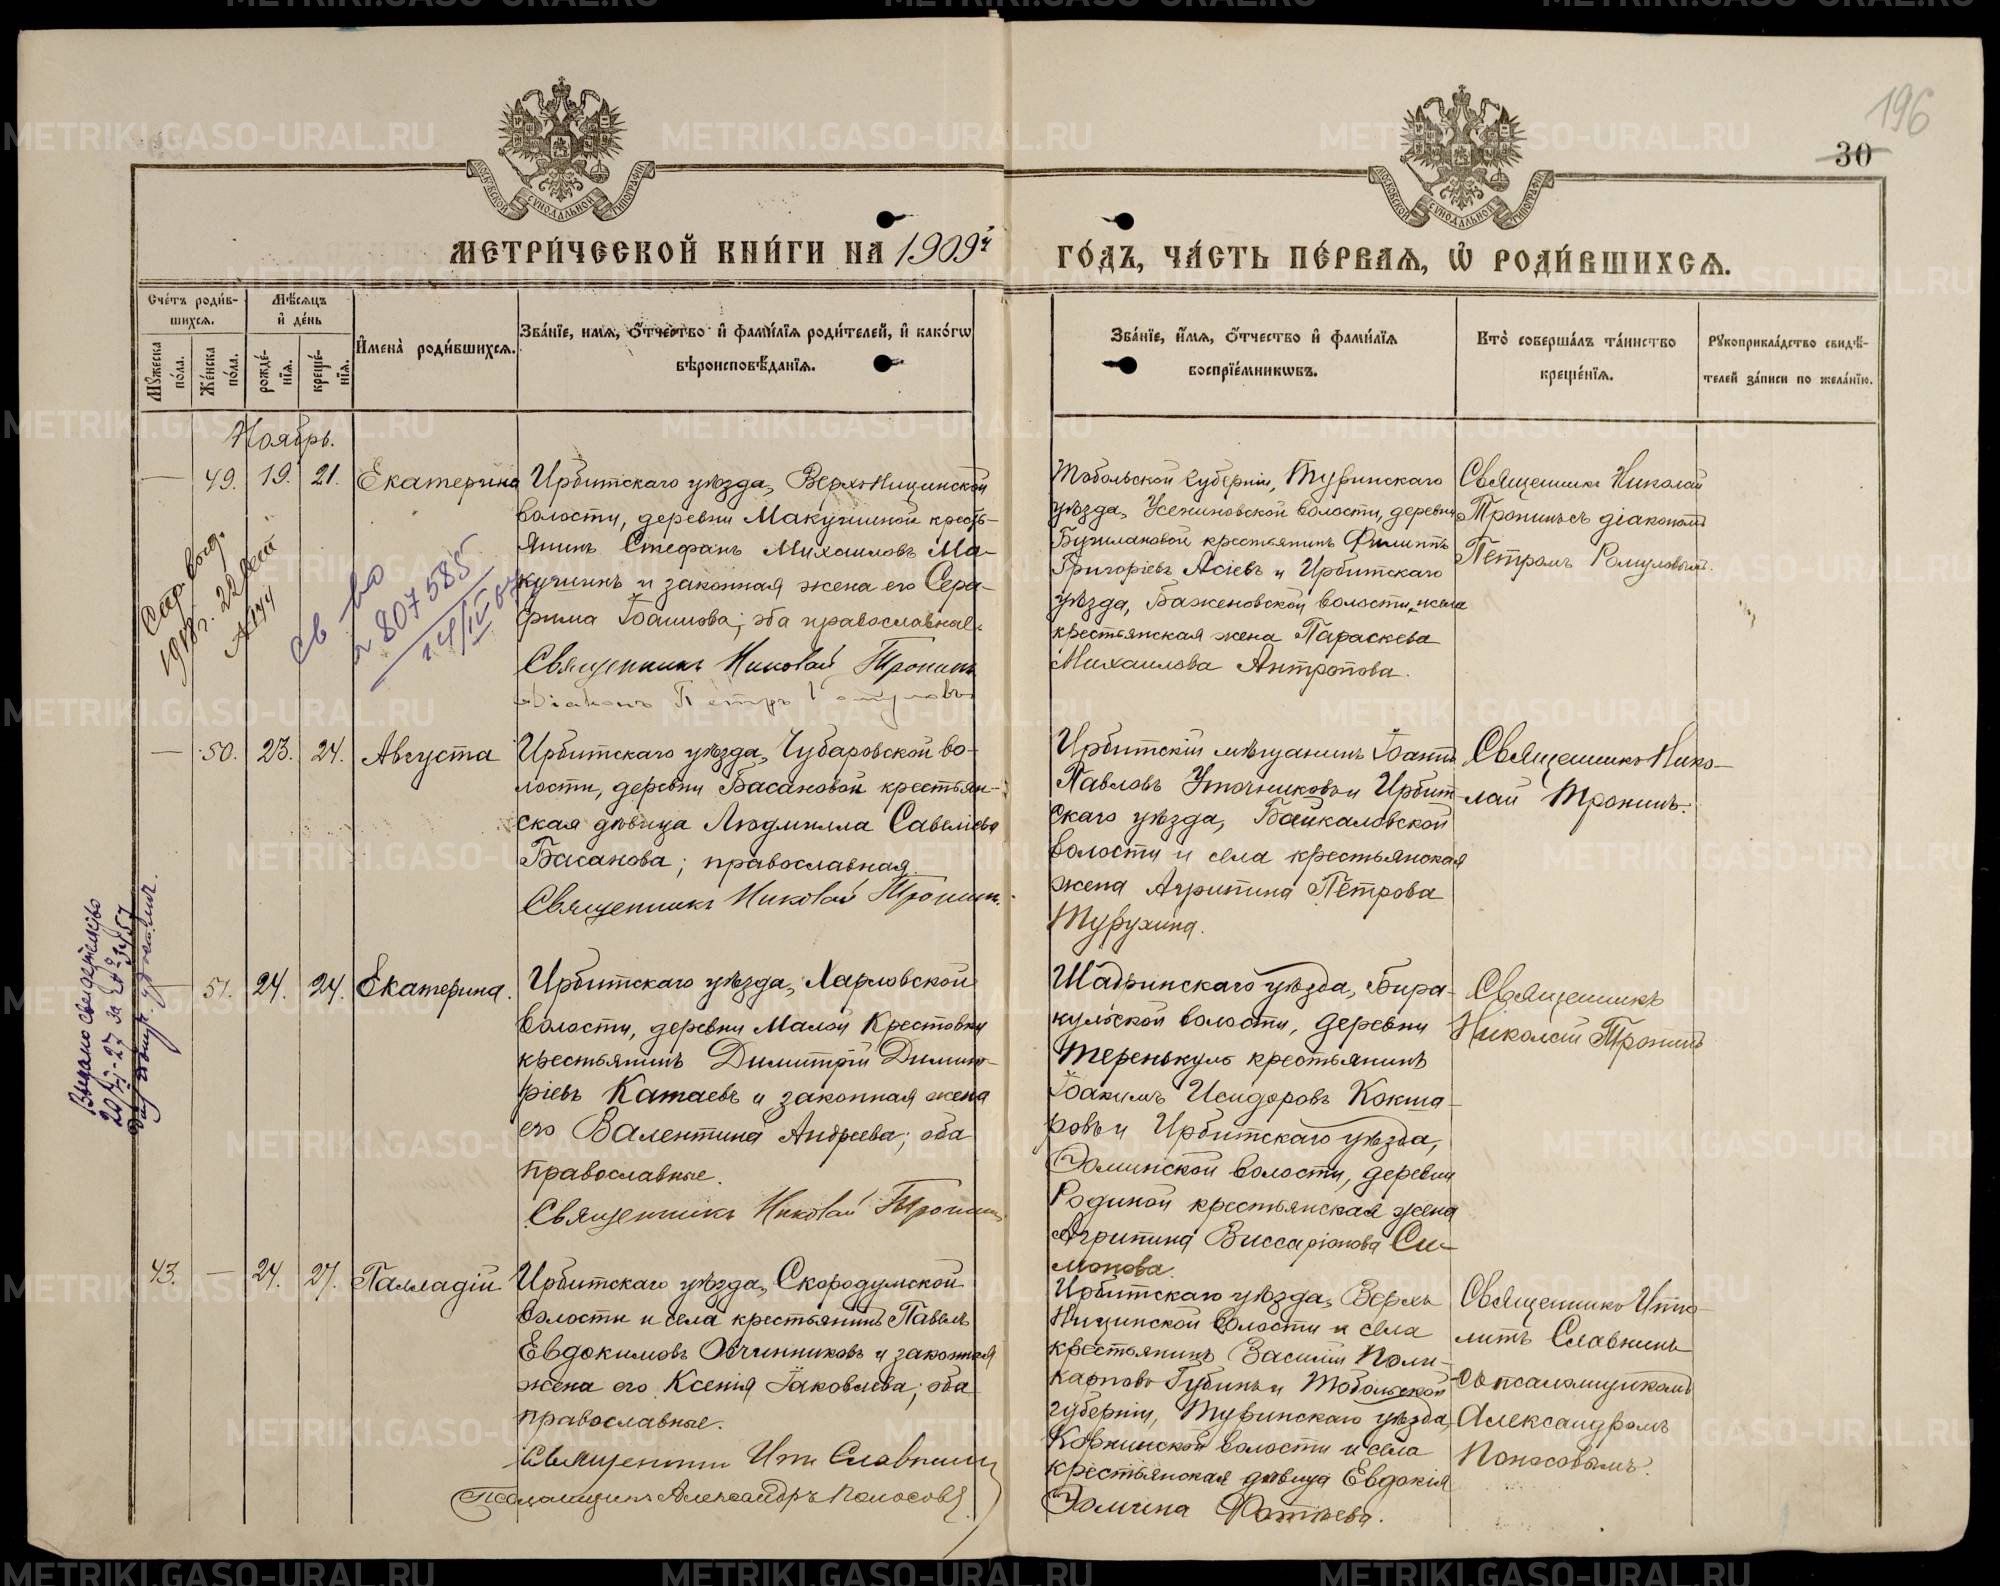 196
30
МОСКОВСКОЙ СѴНОДАЛЬНОЙ ТИПОГРАФІИ
МОСКОВСКОЙ СѴНОДАЛЬНОЙ ТИПОГРАФІИ
МЕТРИ́ЧЕСКОЙ КНИ́ГИ НА 1909й
ГО́ДЪ, ЧА́СТЬ ПЕ́РВАЯ, Ѽ РОДИ́ВШИХСЯ.
Сче́тъ роди́в-
шихся.
Мѣ́сяцъ
и҆ де́нь
Мꙋжеска по́ла.
Же́нска по́ла.
рожде́-
нїя.
креще́-
нїя.
И҆мена̀ роди́вшихся.
Зва́нїе, и҆мя, ѻ҆́тчество и҆ фами́лїя роди́телей, и҆ како́гѡ
вѣроисповѣ́данїя.
Зва́нїе, и҆́мя, ѻ҆́тчество и҆ фами́лїя
воспрїе́мникѡвъ.
Кто̀ соверша́лъ та́инство
креще́нїя.
Рꙋкоприкла́дство свидѣ́-
телей за́писи по жела́нїю.
Ноябрь.
— 49. 19. 21. Екатерина
Ирбитскаго уѣзда, Верхъ Ницинской
волости, деревни Макушиной кресть-
янинъ Стефанъ Михаиловъ Ма-
кушинъ и законная жена его Сера-
фима Іоаннова; оба православные.
Священникъ Николай Тронинъ
Діаконъ Петръ Ромуловъ
Тобольской губерніи, Туринскаго
уѣзда, Усениновской волости, деревни
Бушлановой крестьянинъ Филиппъ
Григоріевъ Асіевъ и Ирбитскаго
уѣзда, Баженовской волости, села
крестьянская жена Параскева
Михаилова Антропова.
Священникъ Николай
Тронинъ съ діакономъ
Петромъ Ромуловымъ.
1918 г. 22
№ 144
св-во
807585
— 50. 23. 24. Августа
Ирбитскаго уѣзда, Чубаровской во-
лости, деревни Басановой крестьян-
ская дѣвица Людмилла Савеліева
Басанова; православная.
Священникъ Николай Тронинъ.
Ирбитскій мѣщанинъ Іоаннъ
Павловъ Уточниковъ и Ирбит-
скаго уѣзда, Байкаловской
волости и села крестьянская
жена Агрипина Петрова
Турухина.
Священникъ Нико-
лай Тронинъ.
Выдано свидетельство
— 51. 24. 24. Екатерина.
Ирбитскаго уѣзда, Харловской
волости, деревни Малой Крестовки
крестьянинъ Димитрій Димит-
ріевъ Катаевъ и законная жена
его Валентина Андреева; оба
православные.
Священникъ Николай Тронинъ
Шадринскаго уѣзда, Бира-
кульской волости, деревни
Теренькуль крестьянинъ
Іоакимъ Исидоровъ Кокша-
ровъ и Ирбитскаго уѣзда,
Фоминской волости, деревни
Родиной крестьянская жена
Агрипина Виссаріонова Си-
монова.
Священникъ
Николай Тронинъ
43. — 24. 27. Палладій
Ирбитскаго уѣзда, Скородумской
волости и села крестьянинъ Павелъ
Евдокимовъ Овчинниковъ и законная
жена его Ксенія Іаковлева; оба
православные.
Священникъ Ипп Славнинъ
Псаломщикъ Александръ Поносовъ
Ирбитскаго уѣзда, Верхъ
Ницинской волости и села
крестьянинъ Василій Поли-
карповъ Губинъ и Тобольской
губерніи, Туринскаго уѣзда,
Коркинской волости и села
крестьянская дѣвица Евдокія
Фомина Фотѣева.
Священникъ Иппо-
литъ Славнинъ
съ псаломщикомъ
Александромъ
Поносовымъ.
METRIKI.GASO-URAL.RU